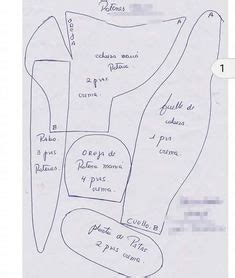 Ratones
A
A
cabeza mamá
Ratona
2 pzas
crema.
1
fuelle de
cabeza
1 pza
crema.
B
Rabo.
3 pzas
Ratones.
Oreja de
Ratona mamá
4 pzas.
crema.
CUELLO. B
planta de Patas
2 pzas crema.